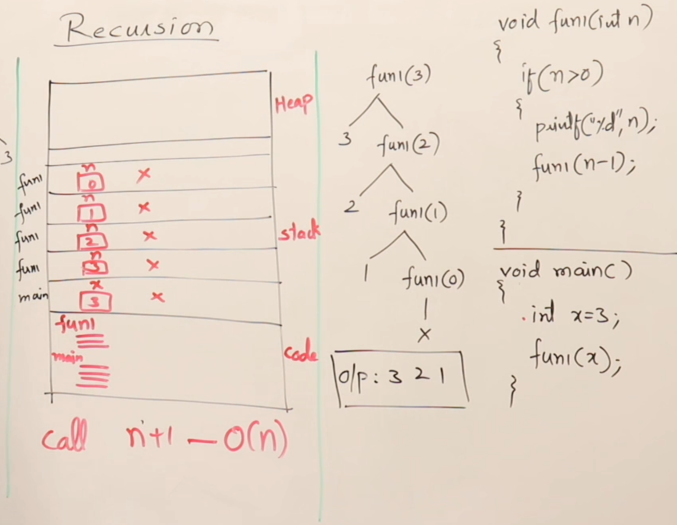 Recursion
Heap
3
fun1 n 0 ×
fun1 n 1 ×
fun1 n 2 ×
fun1 n 3 ×
main x 3 ×
stack
fun1
main
code
call n+1 — O(n)
fun1(3)
3 fun1(2)
2 fun1(1)
1 fun1(0)
×
o/p: 3 2 1
void fun1(int n)
{
if(n>0)
{
printf("%d", n);
fun1(n-1);
}
}
void main()
{
int x=3;
fun1(x);
}